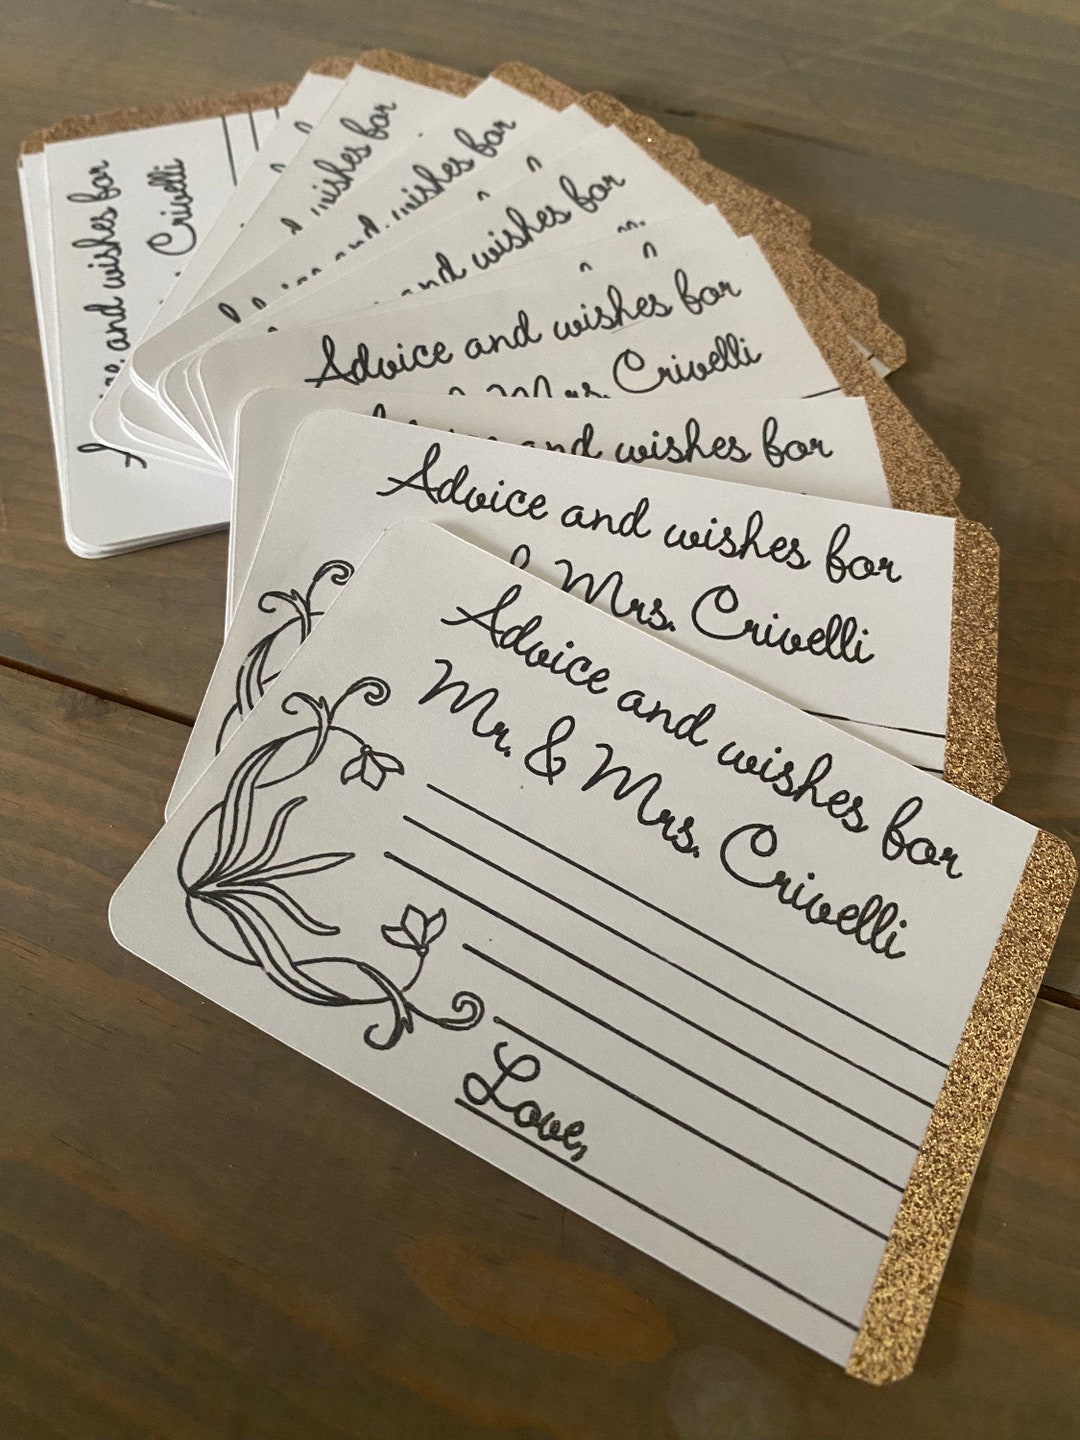 Advice and wishes for
Mr. & Mrs. Crivelli
Love,
Advice and wishes for
Mrs. Crivelli
and wishes for
Advice and wishes for
& Mrs. Crivelli
and wishes for
and wishes for
wishes for
and wishes for
Crivelli